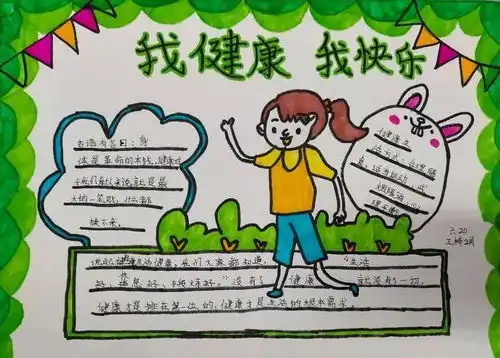 我健康 我快乐
古语有言曰：身
体是革命的本钱，健康对
于我们每个人来说就是最
大的一笔财，什么都
换不来。
健康生
活方式：合理膳
食、适当运动、戒
烟限酒、心
理平衡
六.20
说起健康生活健康，我们大家都知道，“生活
好，休息好，锻炼好。”没有了健康 就没有了一切，
健康才是排在第一位的，健康才是生活的根本需求。